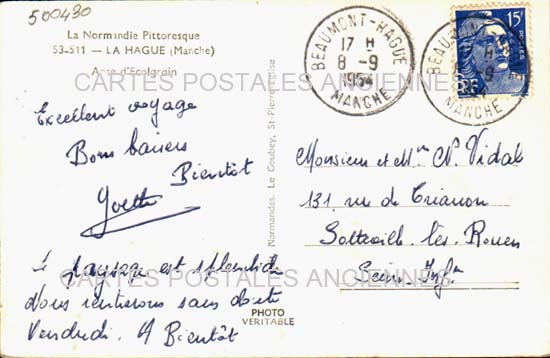 500430
La Normandie Pittoresque
53-511 — LA HAGUE (Manche)
Anse d'Ecalgrain
Excellent voyage
Bons baisers
Bientôt
Yvette
Le paysage est splendide
Nous rentrerons sans doute
Vendredi. A Bientôt
PHOTO
VERITABLE
Normandes. Le Goubey, St-Pierre-Eglise
BEAUMONT-HAGUE
17 H
8 -9
1954
MANCHE
15F
POSTES
BEAUMONT-HAGUE
MANCHE
Monsieur et Mme N. Vidal
131 rue de Trianon
Sotteville les Rouen
Seine-Infre
CARTES POSTALES ANCIENNES
CARTES POSTALES ANCIENNES